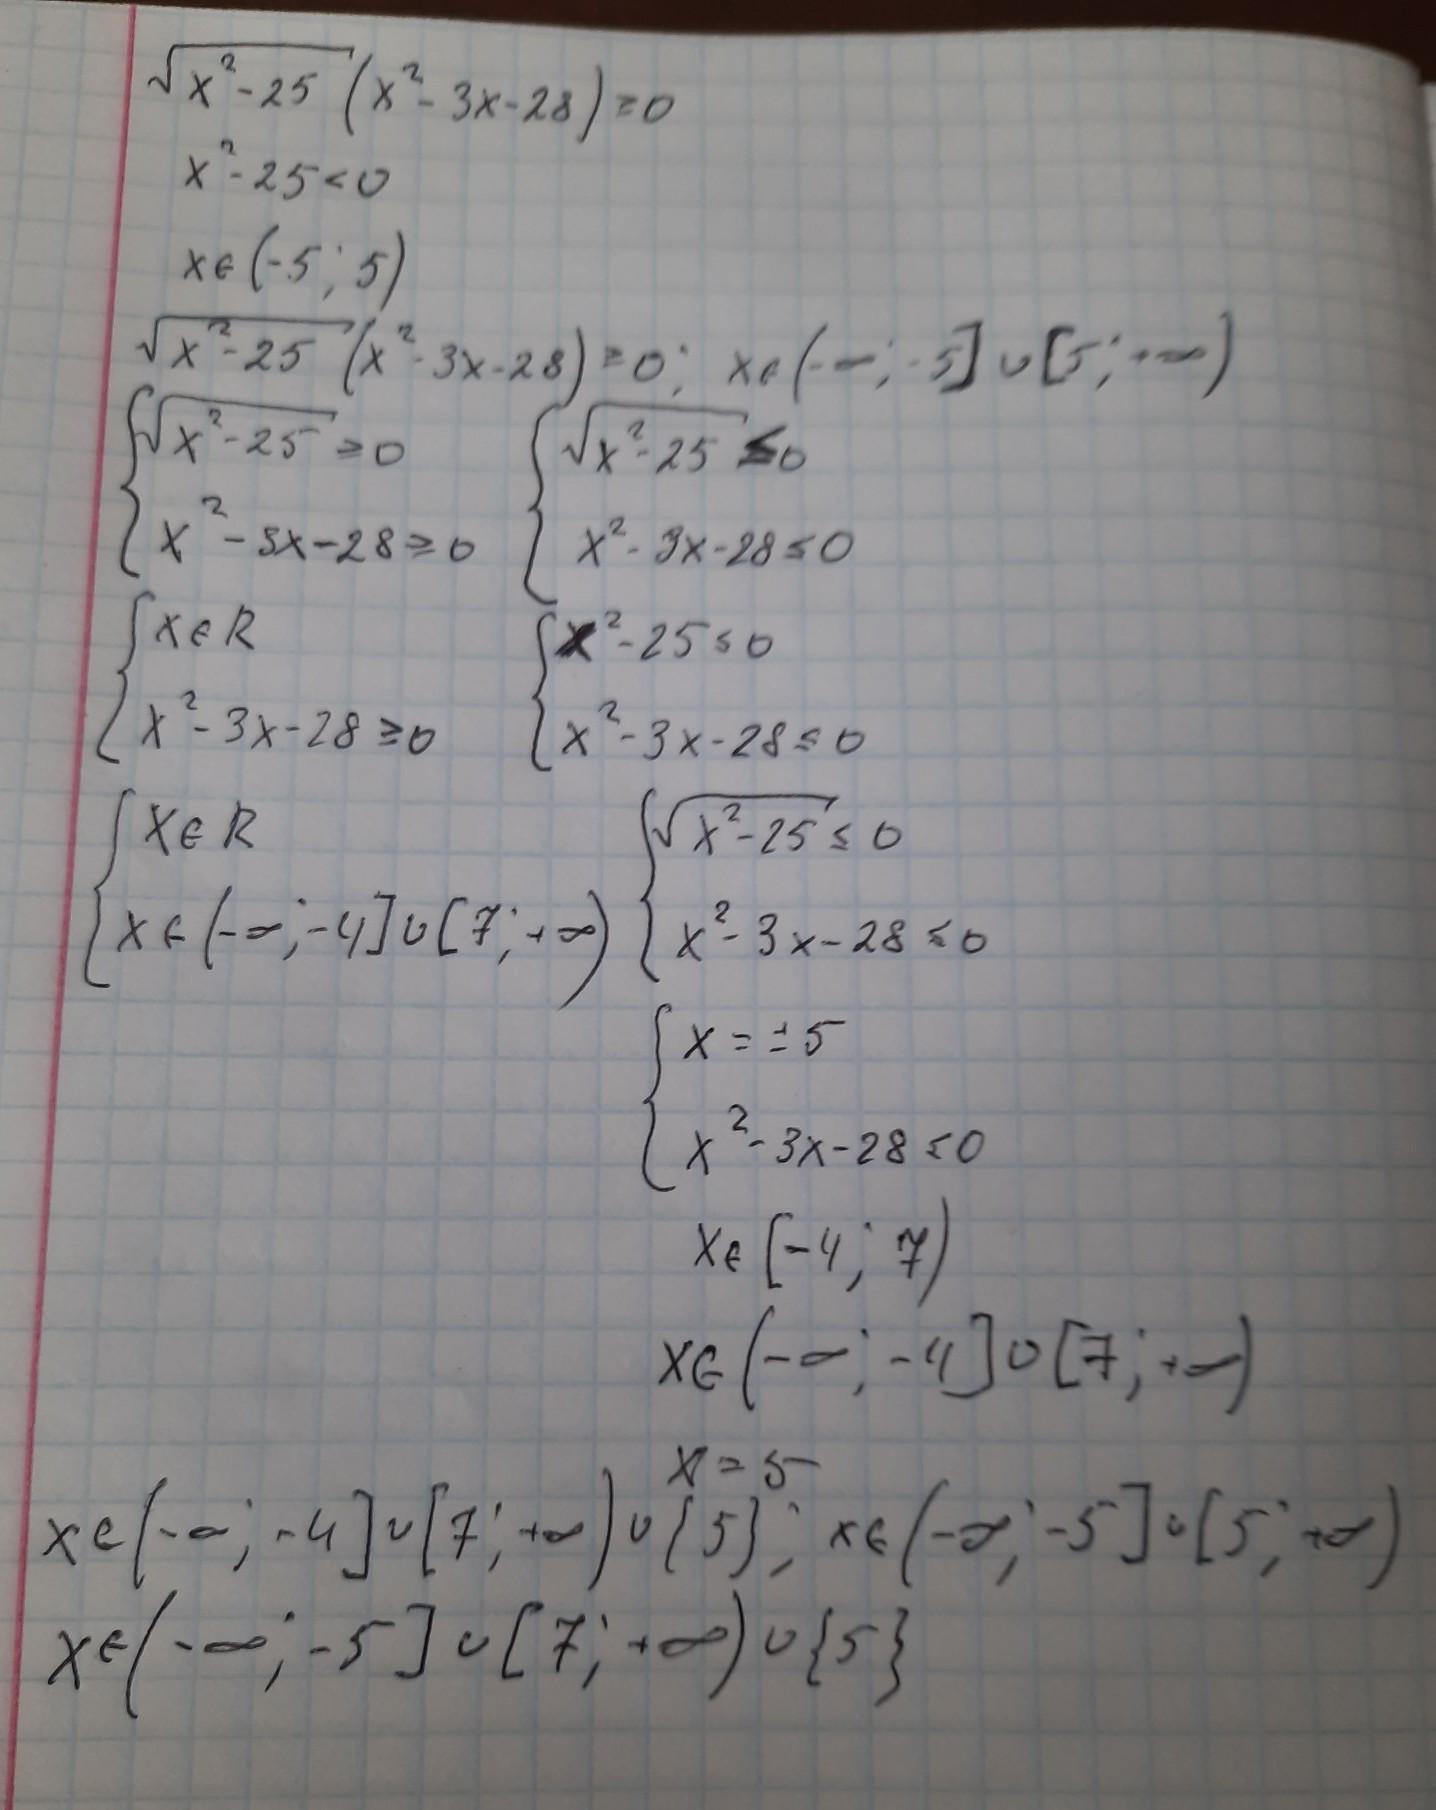 √(x²-25) (x²-3x-28) ≥ 0
x²-25 < 0
x∈(-5; 5)
√(x²-25) (x²-3x-28) ≥ 0; x∈(-∞; -5]∪[5; +∞)
{√(x²-25) ≥ 0 {√(x²-25) ≤ 0
x²-3x-28 ≥ 0 x²-3x-28 ≤ 0
{x∈R {x²-25 ≤ 0
x²-3x-28 ≥ 0 x²-3x-28 ≤ 0
{x∈R {√(x²-25) ≤ 0
x∈(-∞; -4]∪[7; +∞) x²-3x-28 ≤ 0
{x = ±5
x²-3x-28 ≤ 0
x∈[-4; 7)
x∈(-∞; -4]∪[7; +∞)
x = 5
x∈(-∞; -4]∪[7; +∞)∪{5}; x∈(-∞; -5]∪[5; +∞)
x∈(-∞; -5]∪[7; +∞)∪{5}